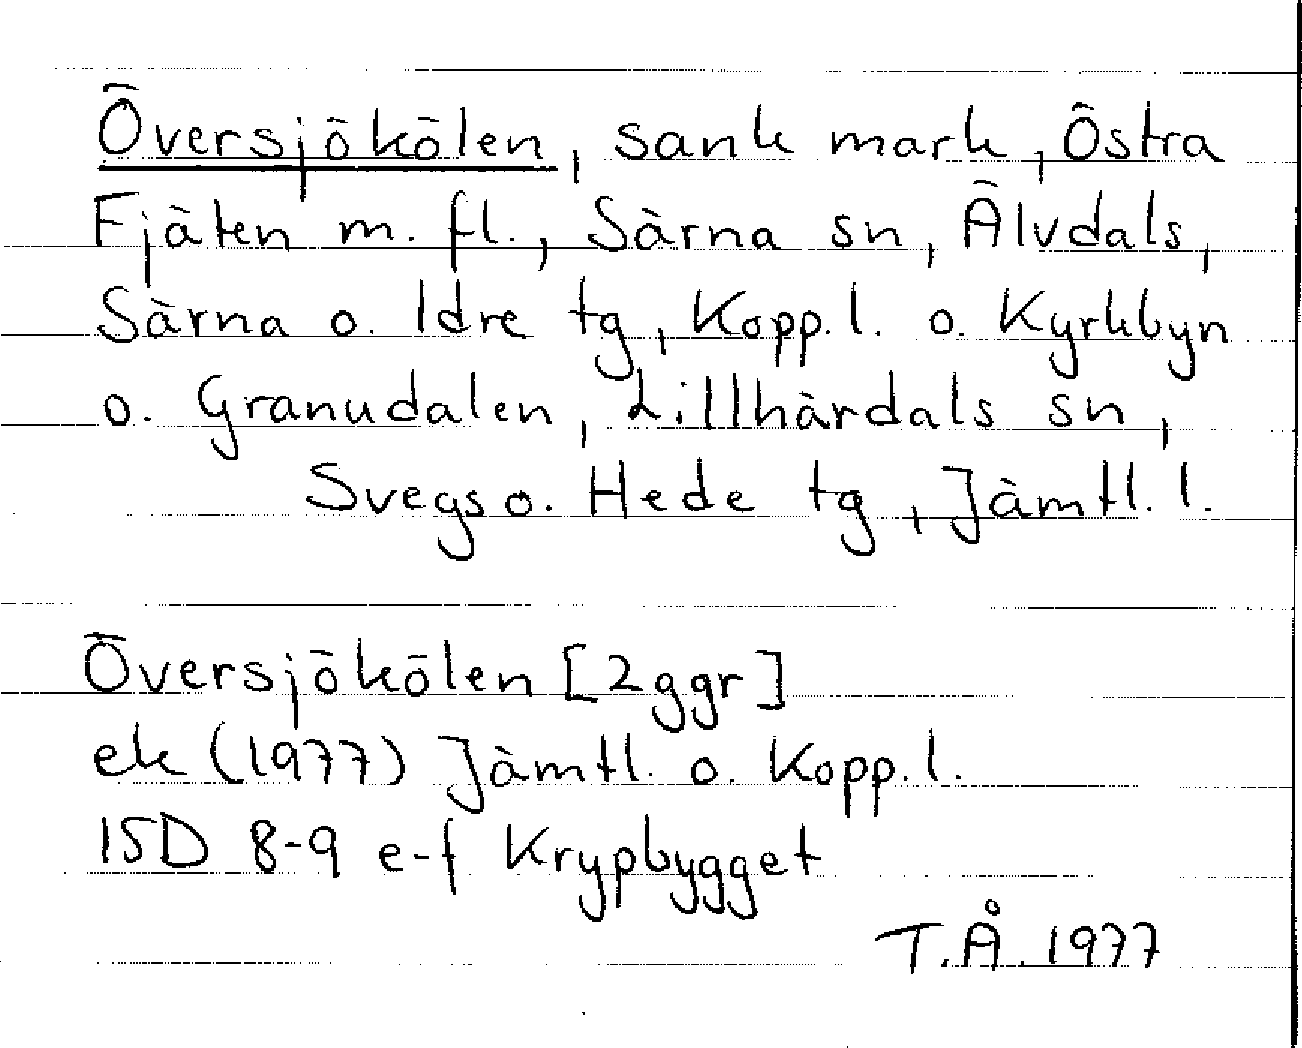 Översjökölen, sank mark, Östra
Fjäten m. fl., Särna sn, Älvdals,
Särna o. Idre tg, Kopp. l. o. Kyrkbyn
o. Granudalen, Lillhärdals sn,
Svegs o. Hede tg, Jämtl. l.
Översjökölen [2 ggr]
ek (1977) Jämtl. o. Kopp. l.
15D 8-9 e-f Krypbygget
T.Å. 1977